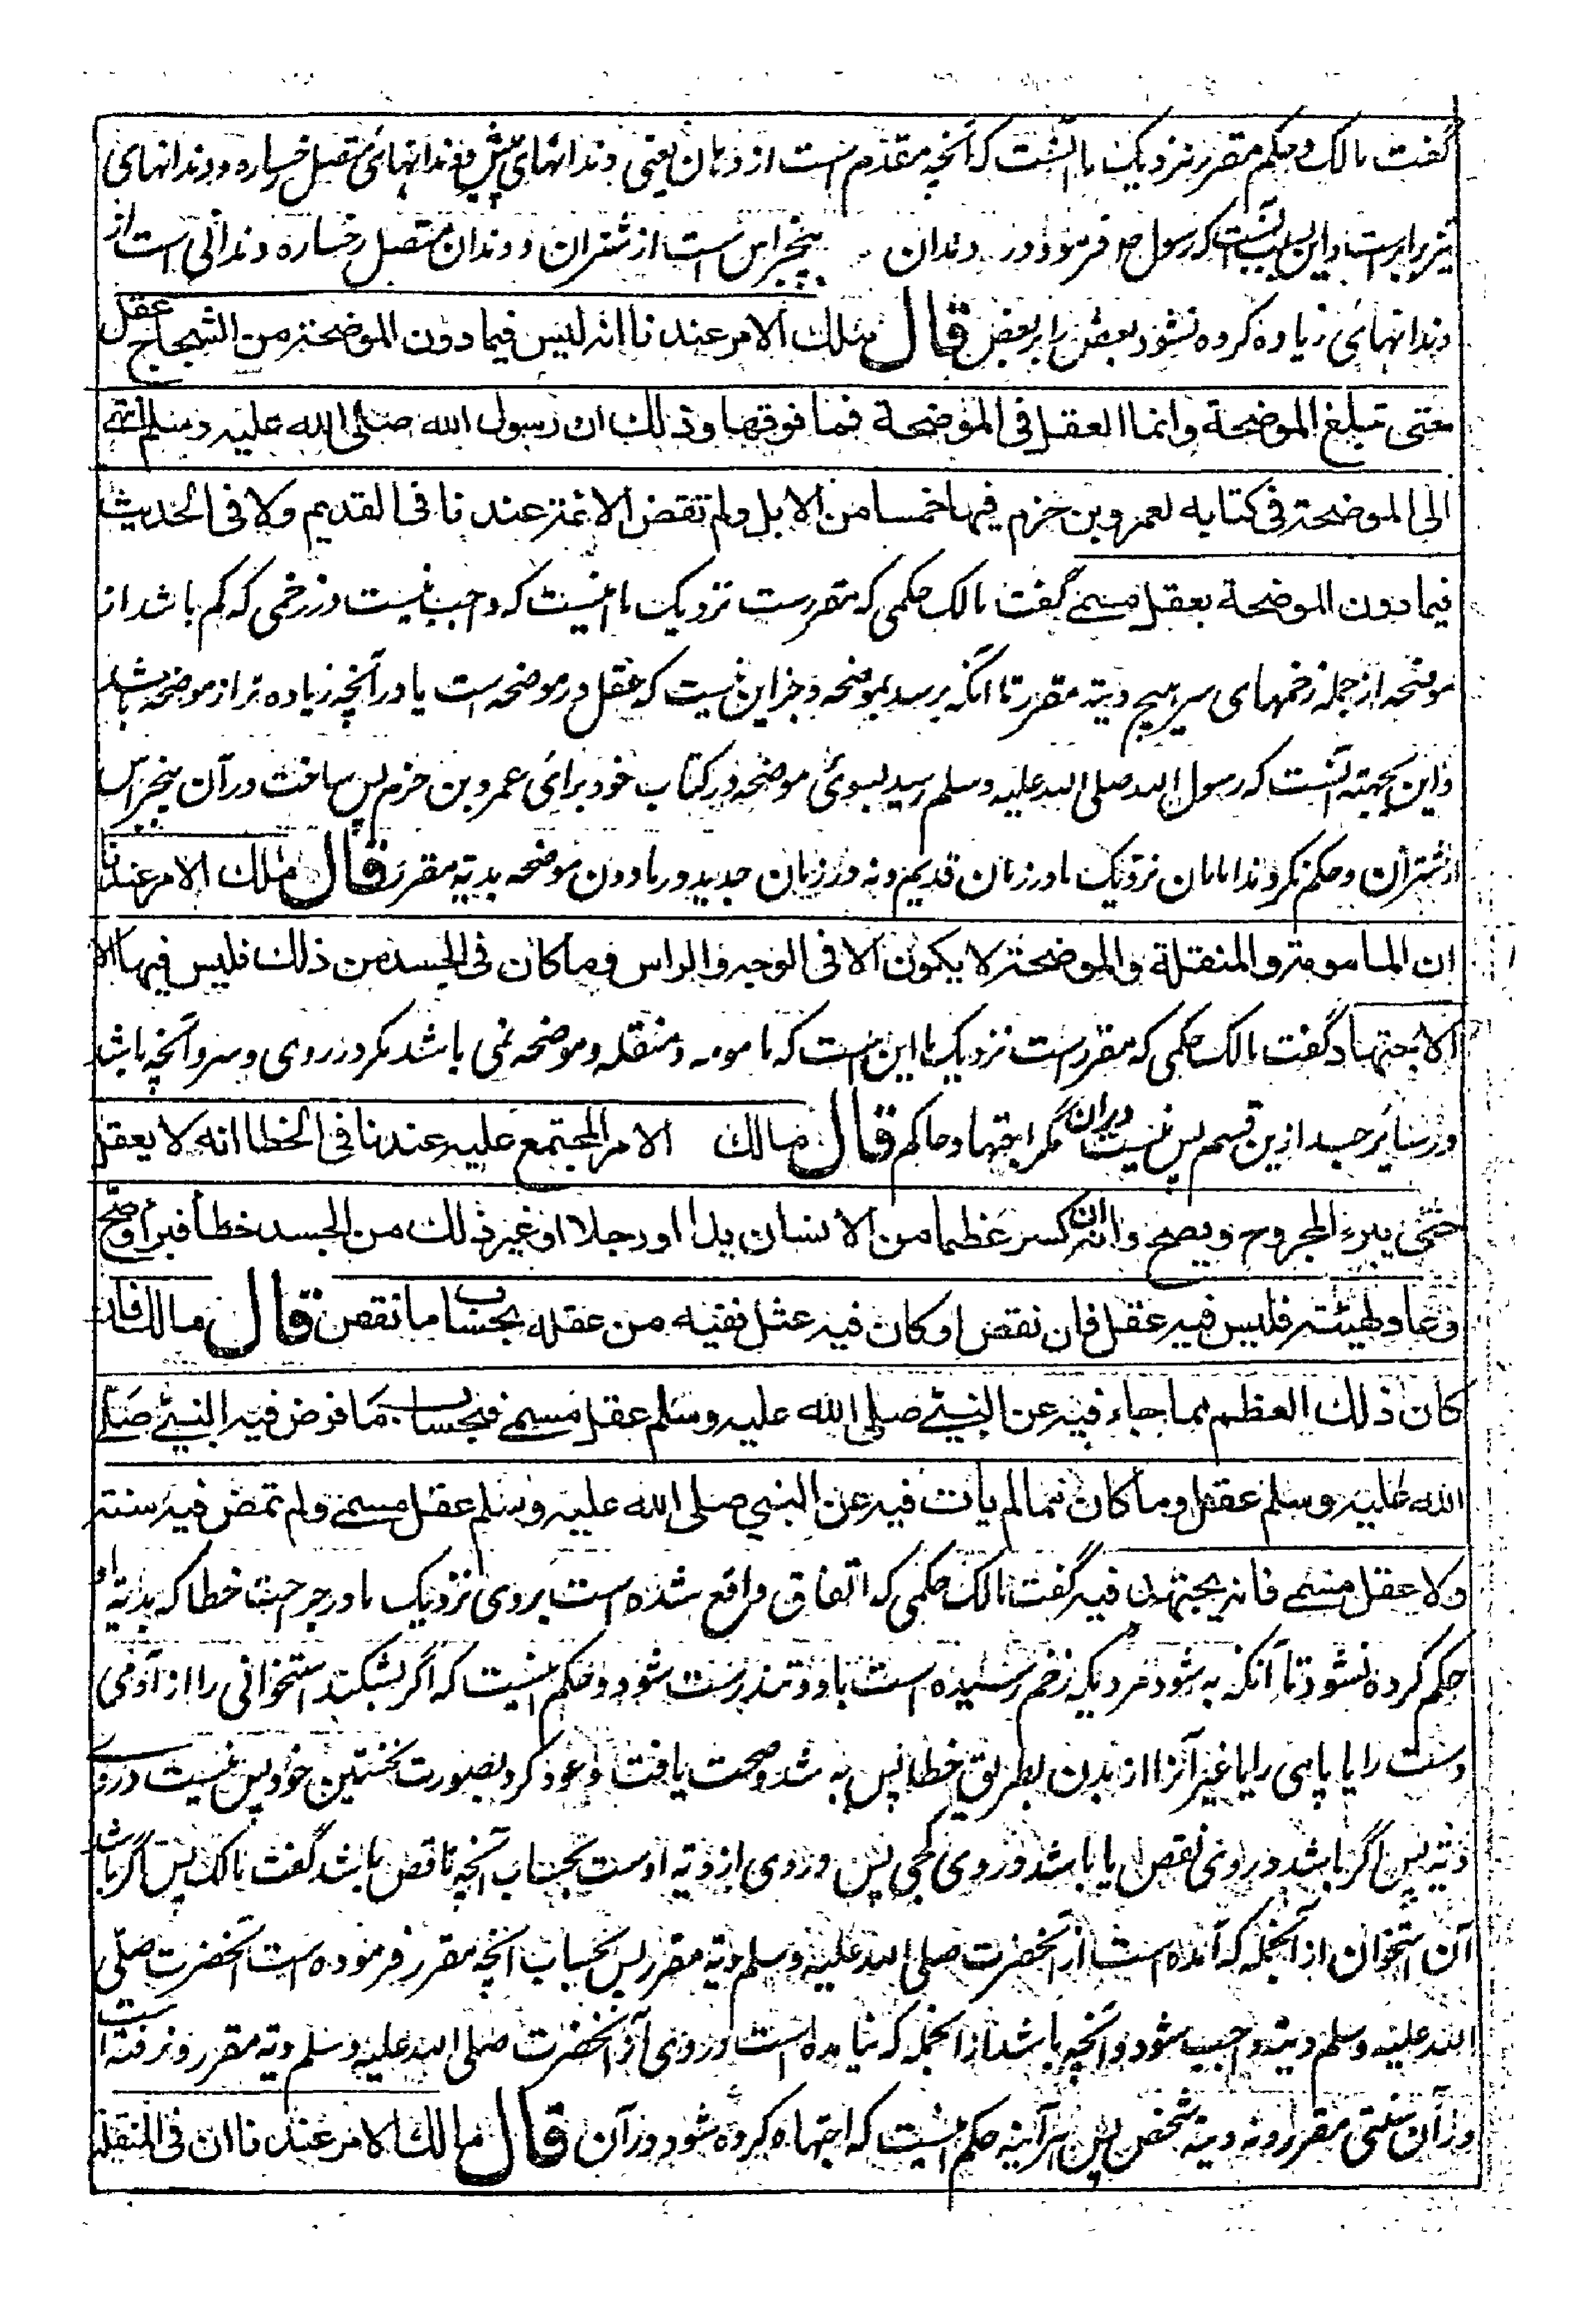 گفت مالک و حکم مقرر نزدیک ما آنست که آنچه مقدم است از دهان یعنی دندانهای پیش و دندانهای متصل رخساره و دندانهای
نیز برابر است و این بسبب آنست که رسول صلعم فرمود در دندان پنجراس است از شتران و دندان متصل رخساره دندانی است از
دندانهای زیاده کرده نشود بعض را بر بعض قال مالك الامر عندنا انه ليس فيما دون الموضحة من الشجاج عقل
حتى تبلغ الموضحة وانما العقل فى الموضحة فما فوقها وذلك ان رسول الله صلى الله عليه وسلم انتهى
الى الموضحة فى كتابه لعمرو بن حزم فيها خمسا من الابل ولم تقض الائمة عندنا فى القديم ولا فى الحديث
فيما دون الموضحة بعقل مسمى گفت مالک حکمی که مقررست نزدیک ما اینست که واجب نیست در زخمی که کم باشد از
موضحه از جمله زخمهای سر هیچ دیته مقرر تا آنکه برسد بموضحه و جز این نیست که عقل در موضحه است یا در آنچه زیاده تر از موضحه باشد
و این بجهته آنست که رسول الله صلی الله علیه وسلم رسید بسوئ موضحه در کتاب خود برائ عمرو بن حزم پس ساخت در آن پنجراس
از شتران و حکم نکردند امامان نزدیک ما در زمان قدیم و نه در زمان جدید در مادون موضحه بدیته مقرر قال مالك الامر عندنا
ان المامومة والمنقلة والموضحة لا يكون الا فى الوجه والراس فما كان فى الجسد من ذلك فليس فيها الا
الاجتهاد گفت مالک حکمی که مقررست نزدیک ما این است که مامومه و منقله و موضحه نمی باشد مگر در روی و سر و آنچه باشد
در سایر جسد ازین قسم پس نیست دران مگر اجتهاد حاکم قال مالك الامر المجتمع عليه عندنا فى الخطا انه لا يعقل
حتى يبرء المجروح ويصح وانه ان كسر عظما من الانسان يدا او رجلا او غير ذلك من الجسد خطأ فبرأ وصح
وعاد لهيئته فليس فيه عقل فان نقص او كان فيه عثل ففيه من عقله بحساب ما نقص قال مالك فان
كان ذلك العظم مما جاء فيه عن النبى صلى الله عليه وسلم عقل مسمى فبحساب ما فرض فيه النبى صلى
الله عليه وسلم عقل وما كان مما لم يات فيه عن النبي صلى الله عليه وسلم عقل مسمى ولم تمض فيه سنة
ولا عقل مسمى فانه يجتهد فيه گفت مالک حکمی که اتفاق واقع شده است بروی نزدیک ما در جراحت خطا که بدیته او
حکم کرده نشود تا آنکه به شود مردیکه زخم رسیده است باو و تندرست شود و حکم اینست که اگر بشکند استخوانی را از آدمی
دست را یا پای را یا غیر آنرا از بدن بطریق خطا پس به شد و صحت یافت و عود کرد بصورت نخستین خود پس نیست درو
دیته پس اگر باشد در وی نقص یا باشد در وی کجی پس در وی از دیته اوست بحساب آنچه ناقص باشد گفت مالک پس اگر باشد
آن استخوان از آنجمله که آمده است از آنحضرت صلی الله علیه وسلم دیته مقرر پس بحساب آنچه مقرر فرموده است آنحضرت صلی
الله علیه وسلم دیته واجب شود و آنچه باشد از انجمله که نیامده است در وی از آنحضرت صلی الله علیه وسلم دیته مقرر و نرفته است
در آن سنتی مقرر و نه دیته مشخص پس هر آینه حکم اینست که اجتهاد کرده شود در آن قال مالك الامر عندنا ان فى المنقلة